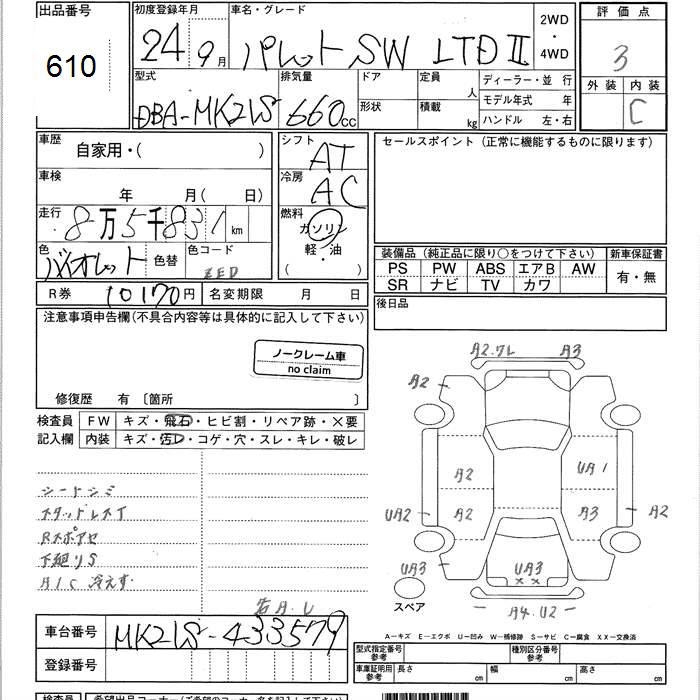 出品番号
610
初度登録年月
24 9月
車名・グレード
パレット SW LTD II
2WD
・
4WD
評価点
3
外装 内装
C
型式
DBA-MK21S
排気量
660cc
ドア
形状
定員
人
積載
kg
ディーラー・並 行
モデル年式 年
ハンドル 左・右
車歴
自家用・( )
車検
年 月( 日)
走行
8万5千831km
色
バイオレット
色替
色コード
ZED
シフト
AT
冷房
AC
燃料
ガソリン
軽・油
( )
セールスポイント (正常に機能するものに限ります)
装備品 (純正品に限り○をつけて下さい)
新車保証書
PS PW ABS エアB AW
SR ナビ TV カワ
有・無
後日品
R券 10170円
名変期限 月 日
注意事項申告欄(不具合内容等は具体的に記入して下さい)
ノークレーム車
no claim
修復歴 有 〔箇所 〕
検査員
記入欄
FW キズ・飛石・ヒビ割・リペア跡・×要
内装 キズ・汚レ・コゲ・穴・スレ・キレ・破レ
シートシミ
スタッドレスタイ
下廻りS
A/C 冷えず
A2.ワレ A3
A2
A2 UA1
UA2 A2 A3 A2
UA3 UA3
××
A4.U2
スペア
A-キズ E-エクボ U-凹み W-補修跡 S-サビ C-腐食 XX-交換済
車台番号
MK21S-433579
登録番号
型式指定番号
参考
種別区分番号
参考
車庫証明用
参考
長さ cm 幅 cm 高さ cm
検査員
希望出品コーナー(ご希望のコーナー名を記入